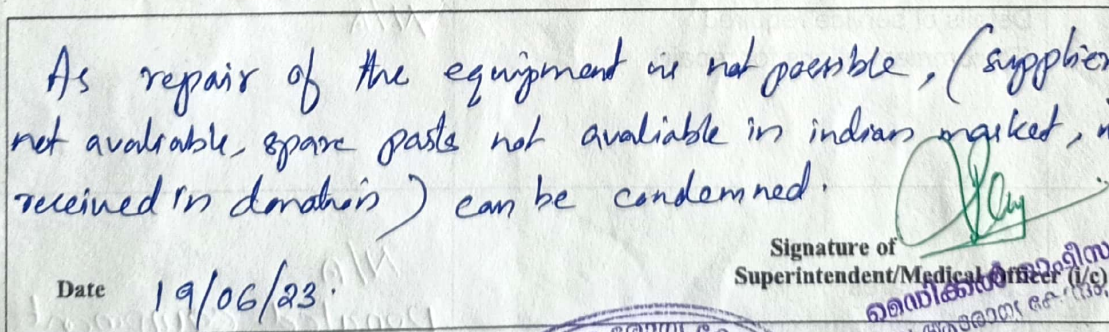 As repair of the equipment is not possible, (supplier
not avaliable, spare parts not avaliable in indian market,
received in donation) can be condemned.
Signature of
Superintendent/Medical Officer (i/c)
Date 19/06/23.
മെഡിക്കൽ ഓഫീസർ